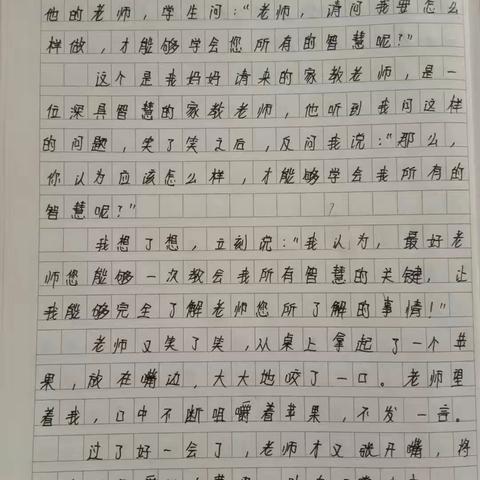 他的老师，学生问："老师，请问我要怎么
样做，才能够学会您所有的智慧呢？"
这个是我妈妈请来的家教老师，是一
位深具智慧的家教老师，他听到我问这样
的问题，笑了笑之后，反问我说："那么，
你认为应该怎么样，才能够学会我所有的
智慧呢？"
我想了想，立刻说："我认为，最好老
师您能够一次教会我所有智慧的关键，让
我能够完全了解老师您所了解的事情！"
老师又笑了笑，从桌上拿起了一个苹
果，放在嘴边，大大地咬了一口。老师望
着我，口中不断咀嚼着苹果，不发一言。
过了好一会了，老师才又张开嘴，将